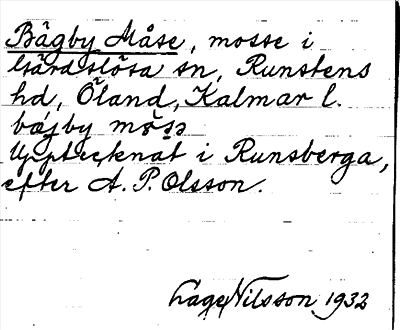 Bägby Måse, mosse i
Gärdslösa sn, Runstens
hd, Öland, Kalmar l.
Upptecknat i Runsberga,
efter A. P. Olsson.
Lage Nilsson 1932